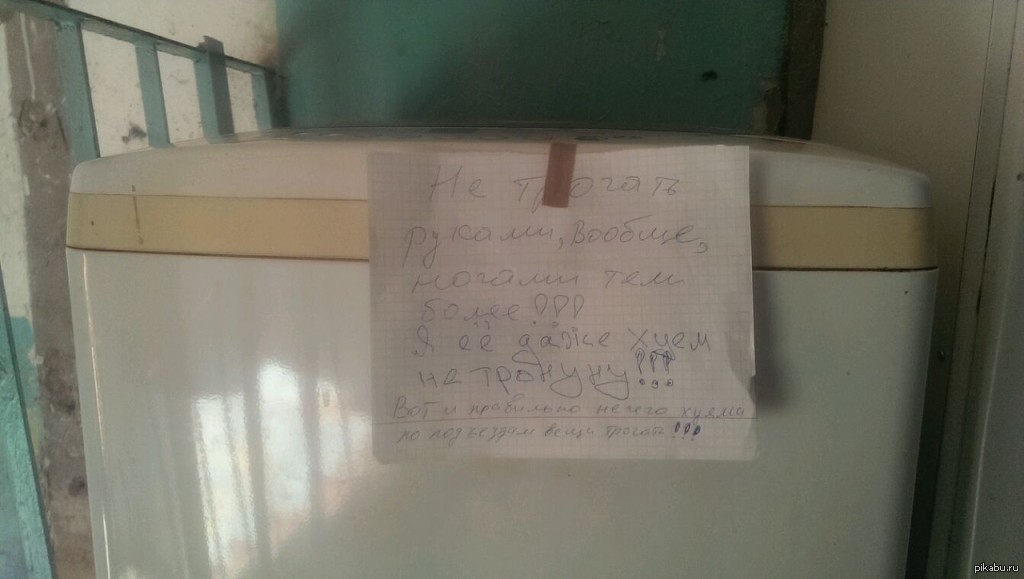 Не трогать
руками, вообще,
ногами тем
более!!!
Я её даже хуем
не трону ну!!!
Вот и правильно нечего хуями
по подъездам вещи трогать!!!
pikabu.ru